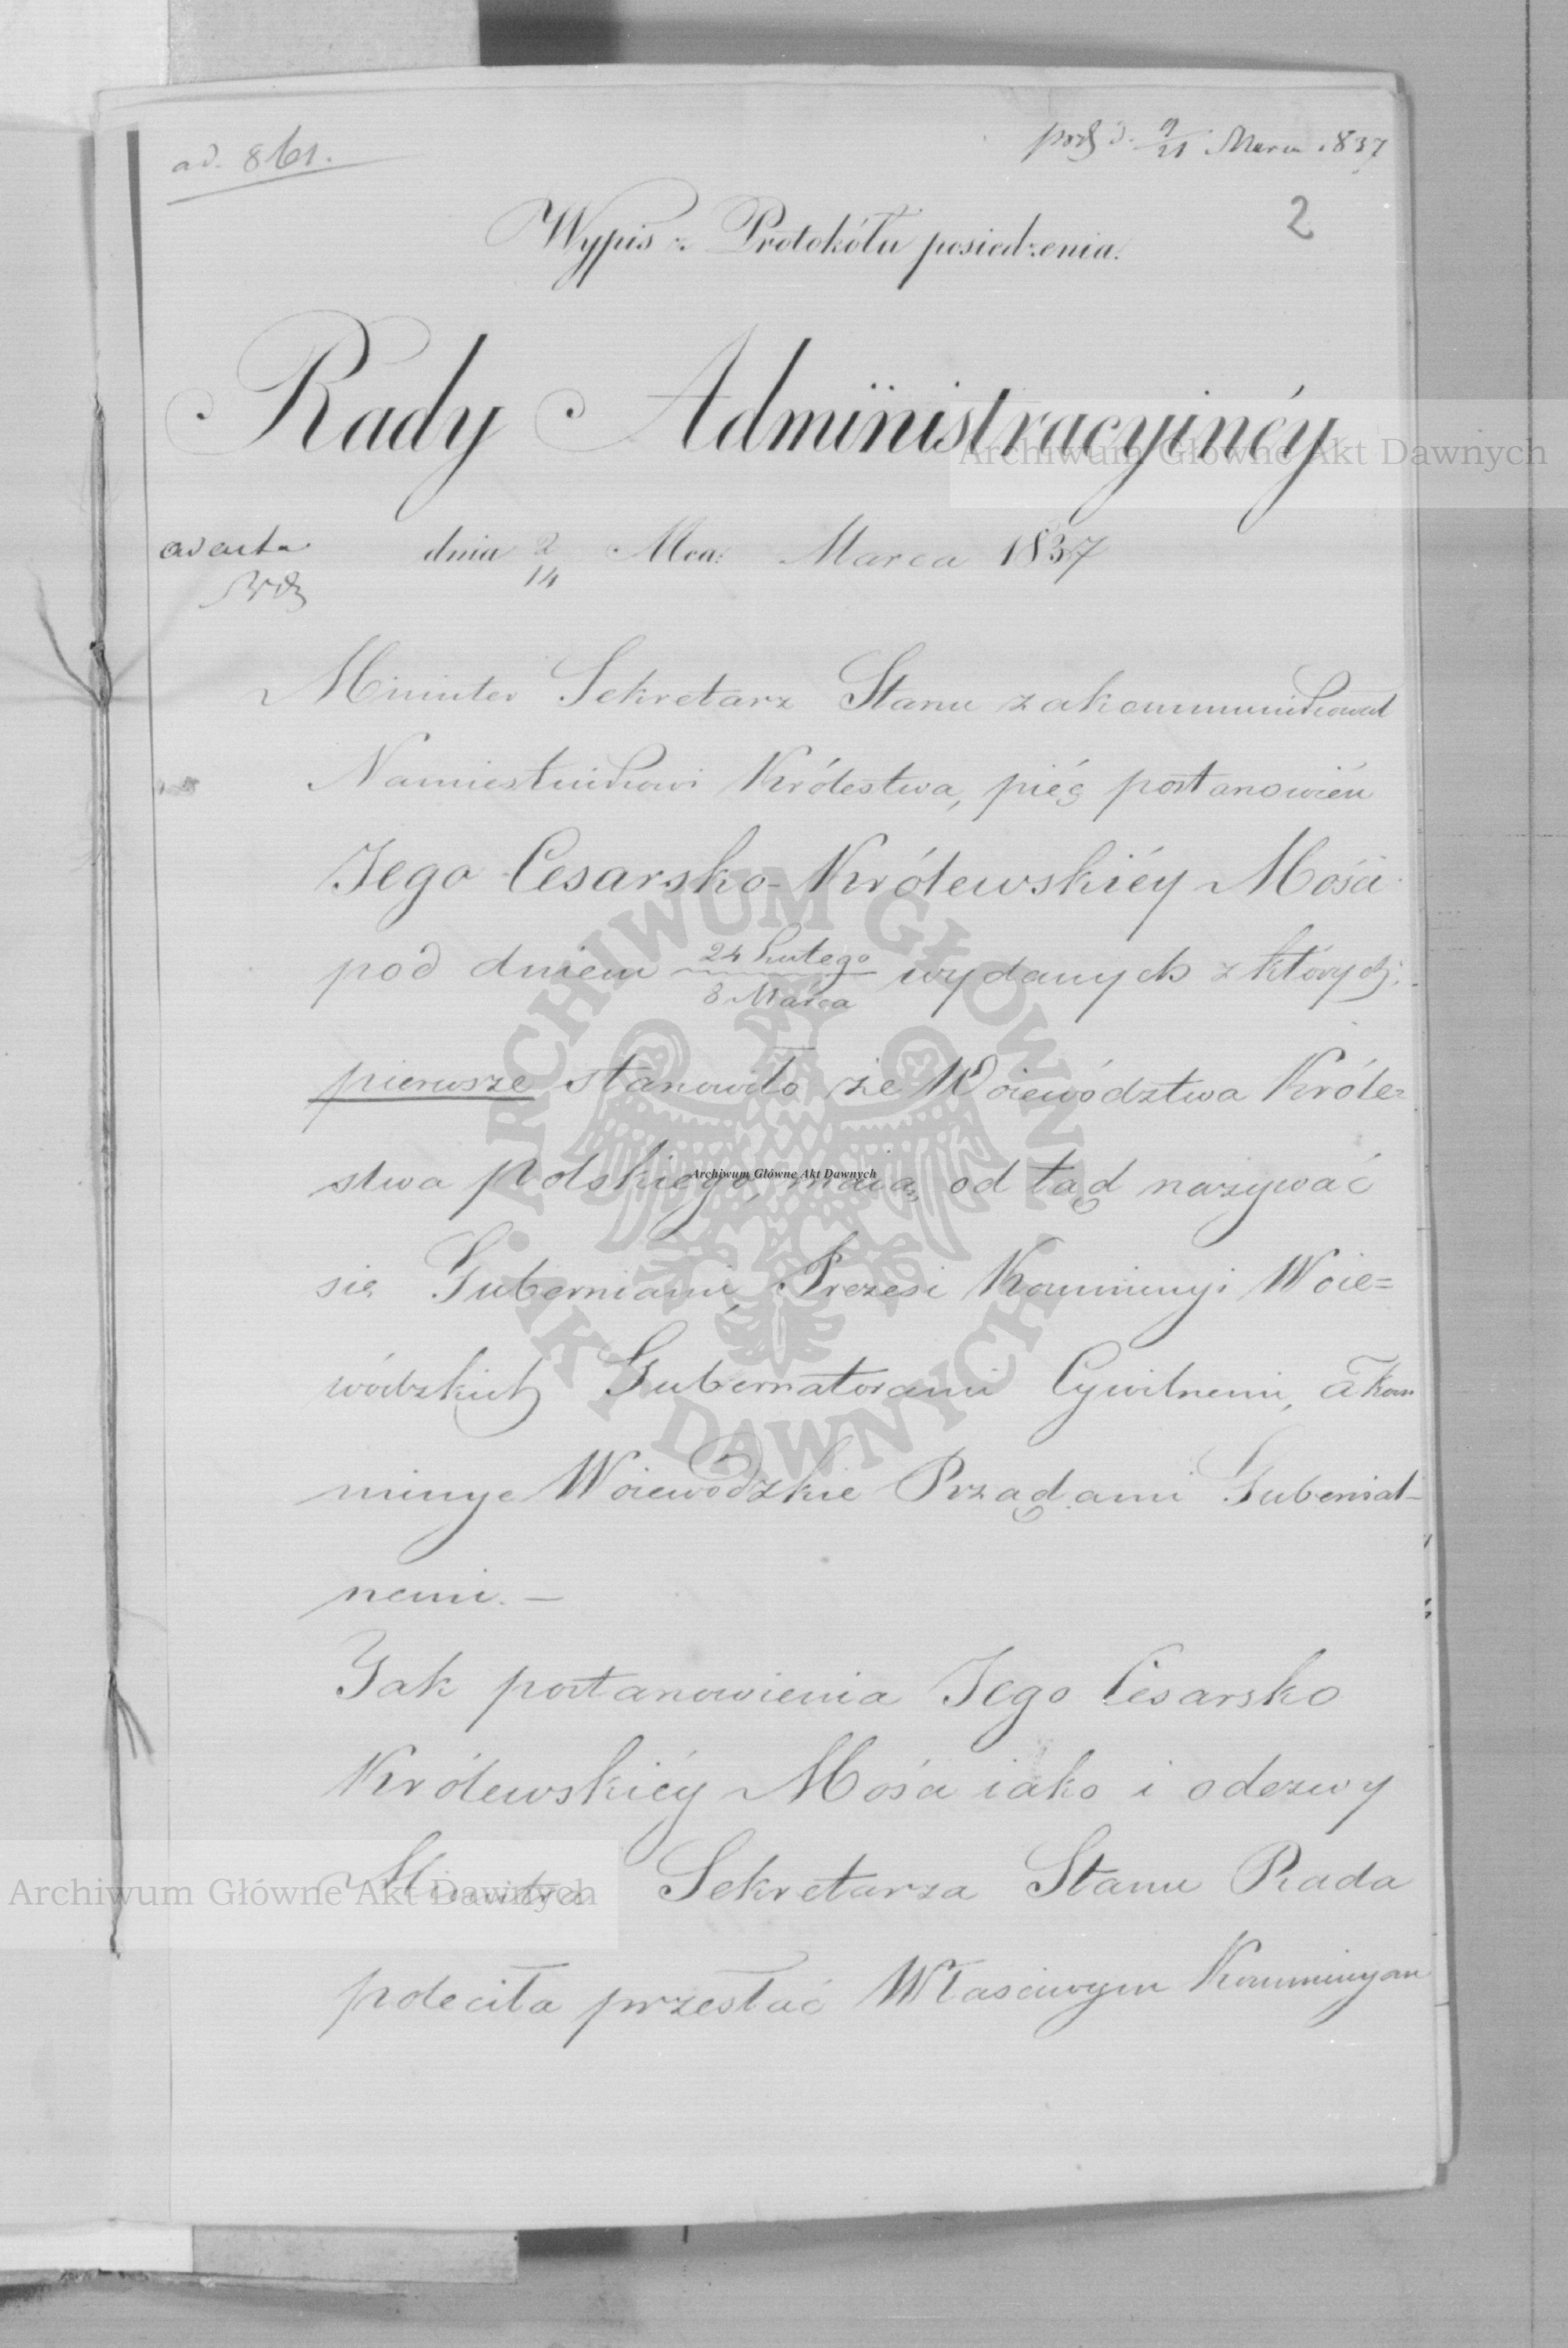 ad. 861.
d. 9/21 Marca 1837
2
Wypis z Protokółu posiedzenia.
Rady Administracyinéy
ad acta
dnia 2/14 Mca: Marca 1837
Minister Sekretarz Stanu zakommunikował
Namiestnikowi Królestwa, pięć postanowień
Jego Cesarsko-Królewskiéy Mości
pod dniem 24 Lutego / 8 Marca wydanych z których:
pierwsze stanowiło że Woiewództwa Króle=
stwa Polskiego, maią od tąd nazywać
się Guberniami, Prezesi Kommissyi Woie=
wódzkich Gubernatorami Cywilnemi, a Kom
missye Woiewódzkie Rządami Gubernial-
nemi. —
Jak postanowienia Jego Cesarsko
Królewskiéy Mości iako i odezwy
Ministra Sekretarza Stanu Rada
poleciła przesłać Właściwym Kommissyom
Archiwum Główne Akt Dawnych
Archiwum Główne Akt Dawnych
Archiwum Główne Akt Dawnych
ARCHIWUM GŁÓWNE · AKT DAWNYCH ·